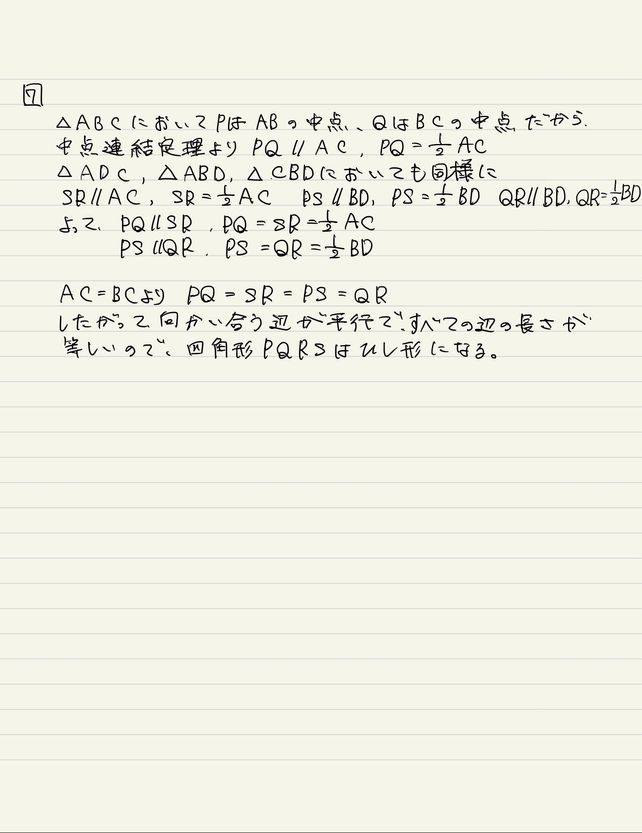 7
△ABCにおいてPはABの中点、QはBCの中点だから、
中点連結定理より PQ // AC, PQ = 1/2 AC
△ADC, △ABD, △CBDにおいても同様に
SR // AC, SR = 1/2 AC PS // BD, PS = 1/2 BD QR // BD, QR = 1/2 BD
よって、PQ // SR, PQ = SR = 1/2 AC
PS // QR, PS = QR = 1/2 BD
AC = BCより PQ = SR = PS = QR
したがって向かい合う辺が平行で、すべての辺の長さが
等しいので、四角形PQRSはひし形になる。